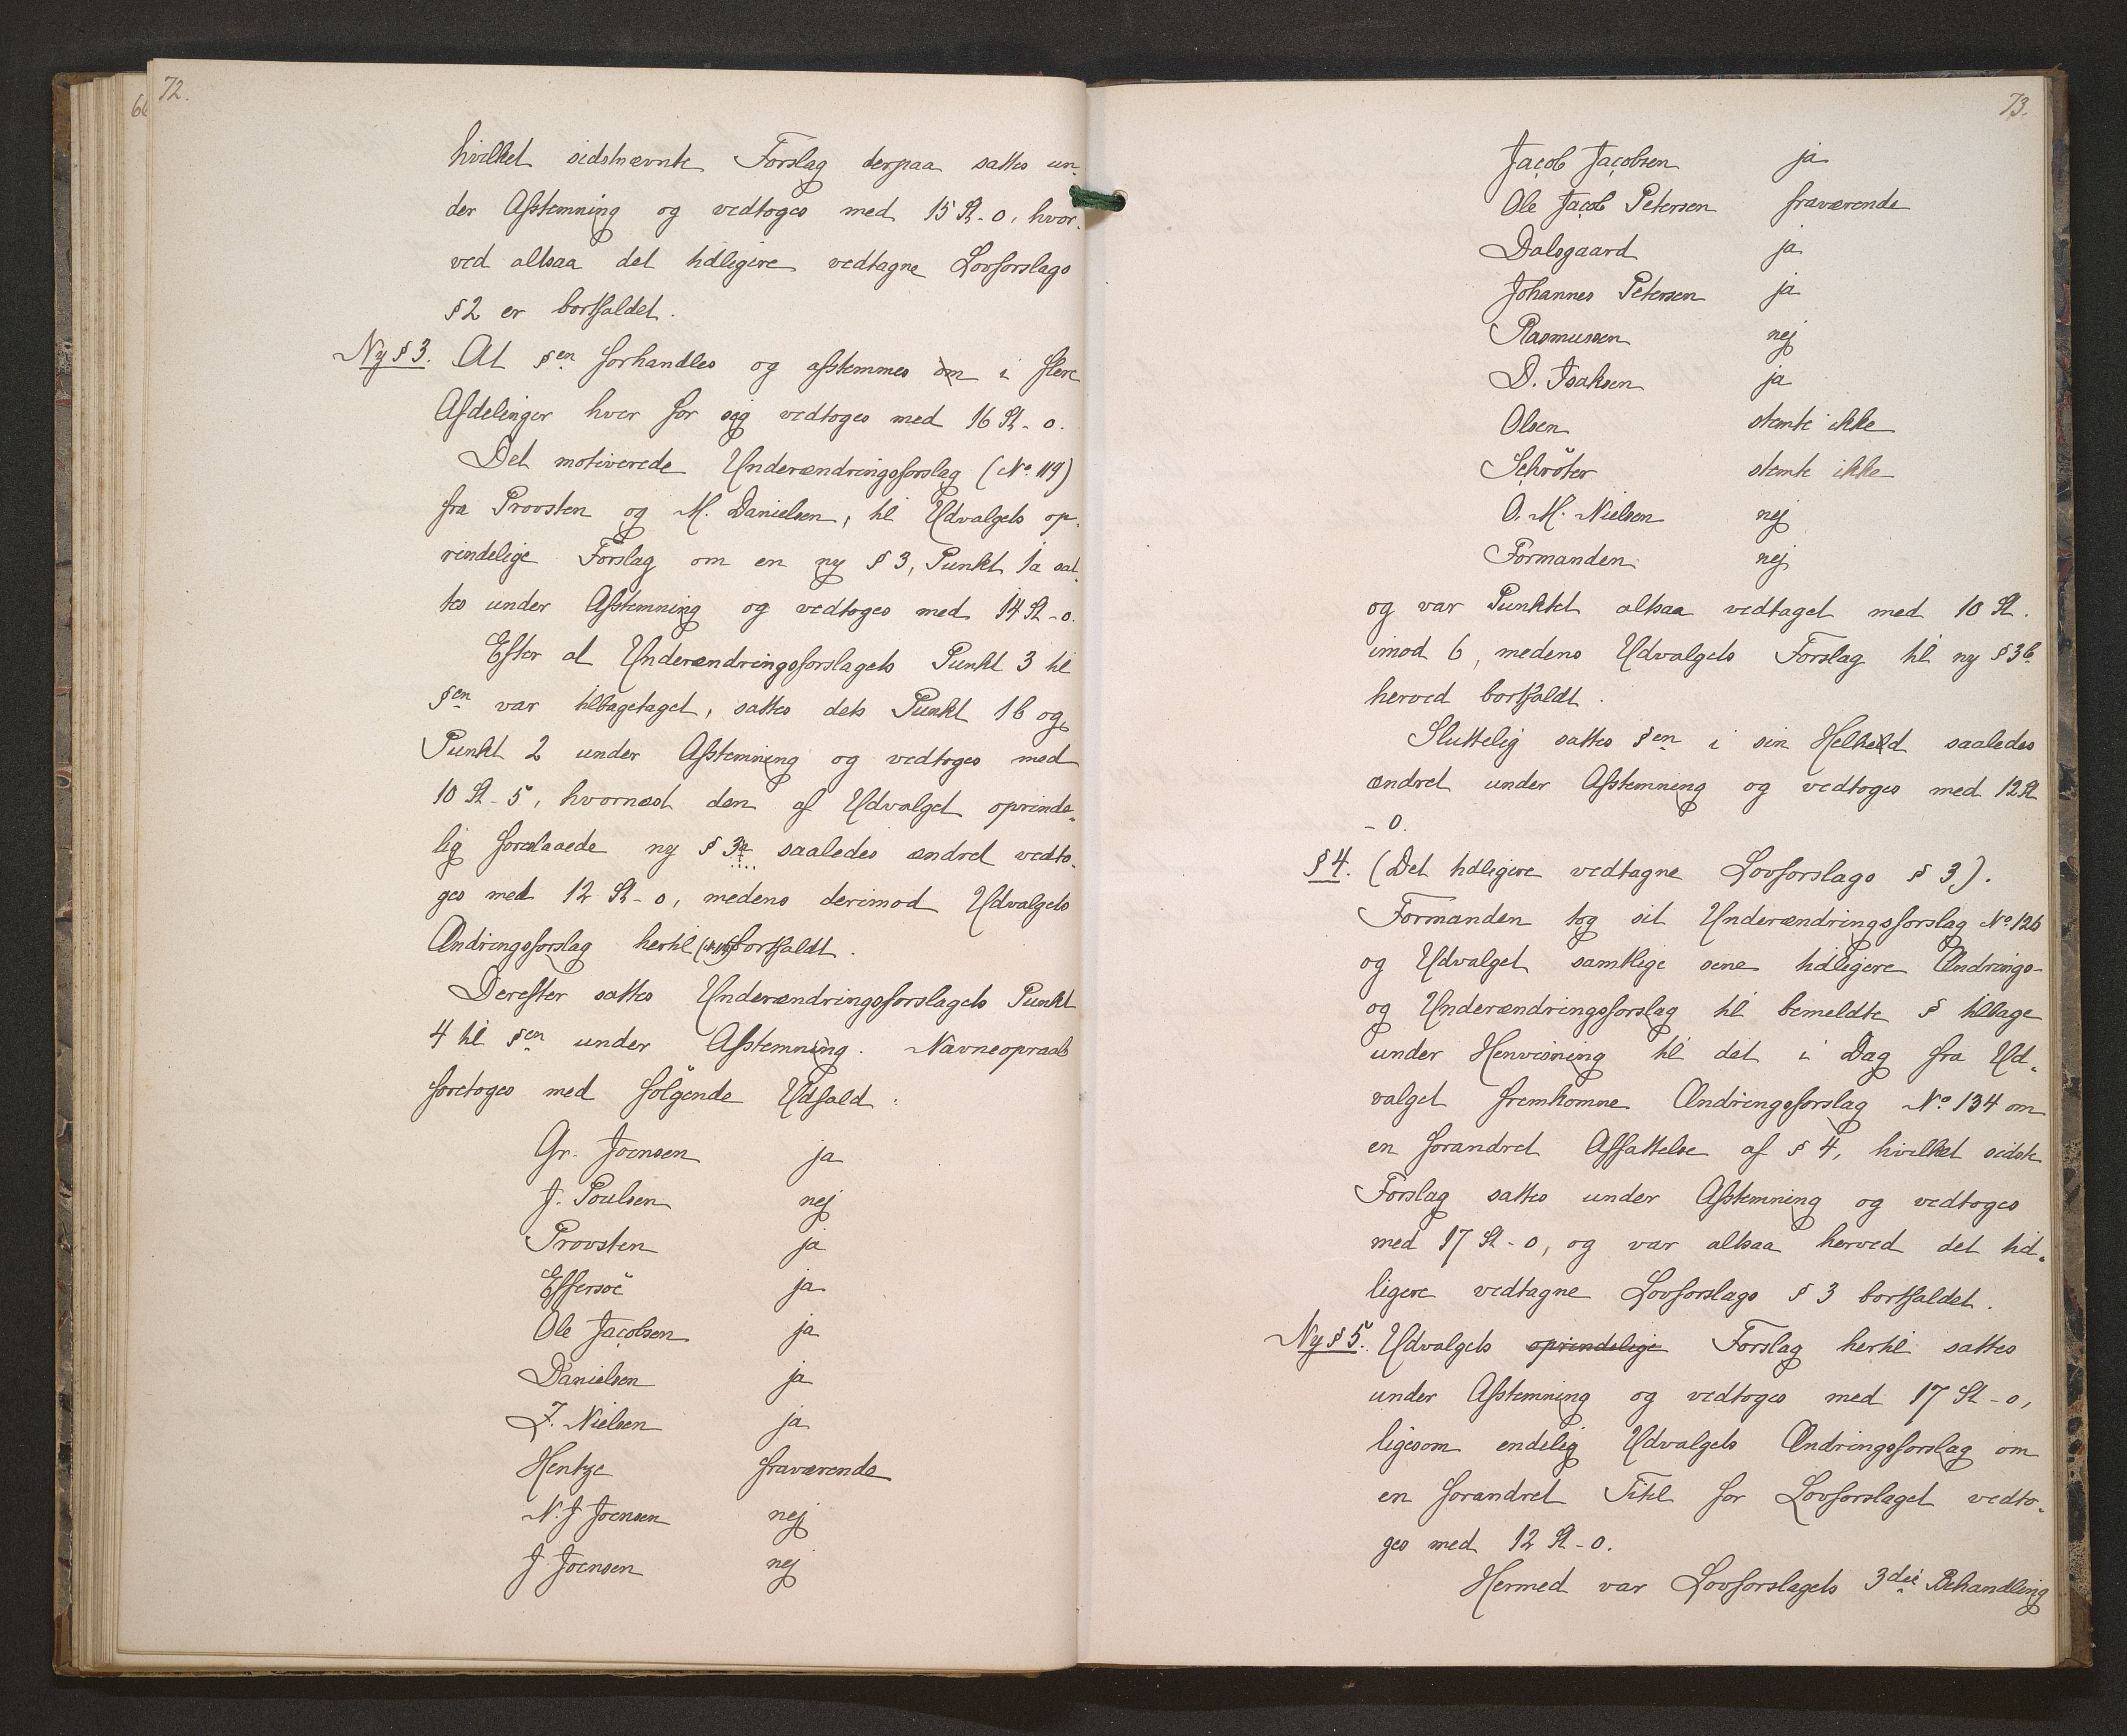 72.
hvilket sidstnævnte Forslag derpaa sattes un-
der Afstemning og vedtoges med 15 St - 0, hvor-
ved altsaa det tidligere vedtagne Lovforslags
§ 2 er bortfaldet.
Ny § 3. At §en forhandles og afstemmes om i flere
Afdelinger hver for sig vedtoges med 16 St - 0.
Det motiverede Underændringsforslag (No. 119)
fra Provsten og M. Danielsen, til Udvalgets op-
rindelige Forslag om en ny § 3, Punkt 1a sat-
tes under Afstemning og vedtoges med 14 St - 0.
Efter at Underændringsforslagets Punkt 3 til
§en var tilbagetaget, sattes dets Punkt 1b og
Punkt 2 under Afstemning og vedtoges med
10 St - 5, hvornæst den af Udvalget oprinde-
lig foreslaaede ny § 3a saaledes ændret vedto-
ges med 12 St - 0, medens derimod Udvalgets
Ændringsforslag hertil bortfaldt.
Derefter sattes Underændringsforslagets Punkt
4 til §en under Afstemning. Navneopraab
foretoges med følgende Udfald:
Gr. Joensen ja
J. Poulsen nej
Provsten ja
Effersöe ja
Ole Jacobsen ja
Danielsen ja
J. Nielsen ja
Hentze fraværende
N. J Joensen nej
J Joensen nej
73.
Jacob Jacobsen ja
Ole Jacob Petersen fraværende
Dalsgaard ja
Johannes Petersen ja
Rasmussen nej
D. Isaksen ja
Olsen stemte ikke
Schröter stemte ikke
O. M. Nielsen nej
Formanden nej
og var Punktet altsaa vedtaget med 10 St.
imod 6, medens Udvalgets Forslag til ny § 3b
herved bortfaldt.
Sluttelig sattes §en i sin Helhed saaledes
ændret under Afstemning og vedtoges med 12 St
- 0.
§ 4. (Det tidligere vedtagne Lovforslags § 3).
Formanden tog sit Underændringsforslag No 126
og Udvalget samtlige sine tidligere Ændrings-
og Underændringsforslag til bemeldte § tilbage
under Henvisning til det i Dag fra Ud-
valget fremkomne Ændringsforslag No. 134 om
en forandret Affattelse af § 4, hvilket sidste
Forslag sattes under Afstemning og vedtoges
med 17 St - 0, og var altsaa herved det tid-
ligere vedtagne Lovforslags § 3 bortfaldet.
Ny § 5. Udvalgets oprindelige Forslag hertil sattes
under Afstemning og vedtoges med 17 St - 0,
ligesom endelig Udvalgets Ændringsforslag om
en forandret Titel for Lovforslaget vedto-
ges med 12 St - 0.
Hermed var Lovforslagets 3die Behandling